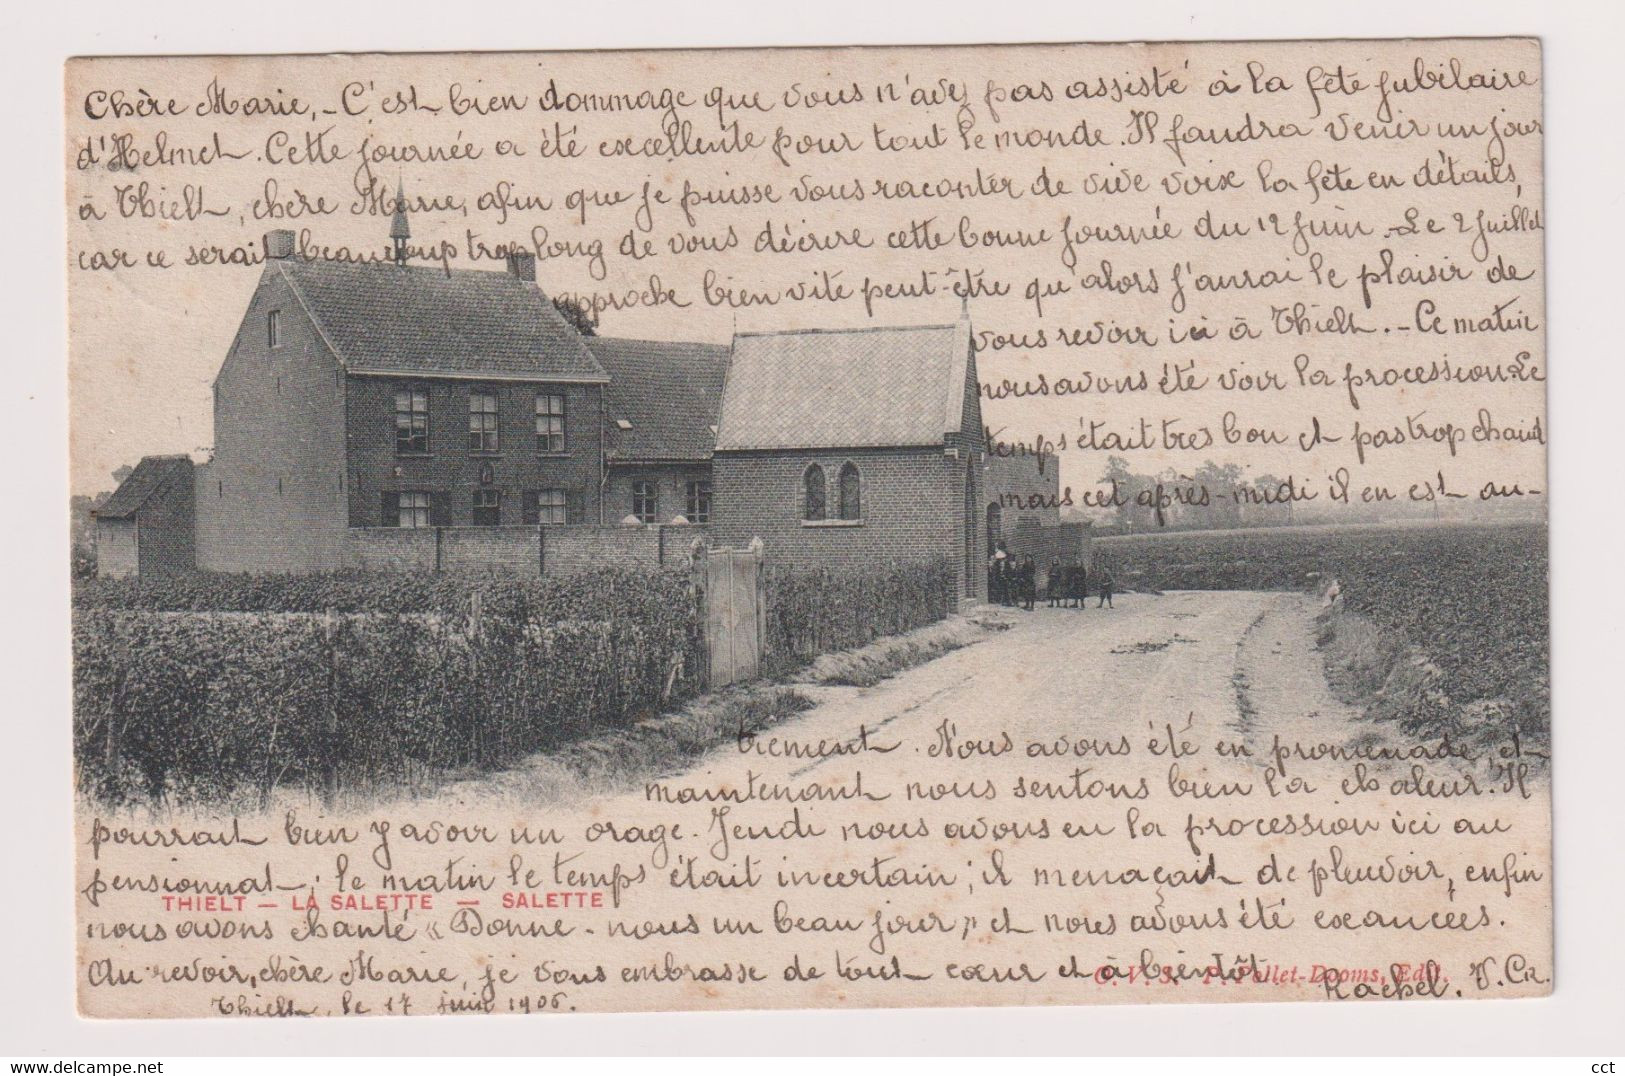 Chère Marie, – C'est bien dommage que vous n'avez pas assisté à la fête jubilaire
d'Helmet. Cette journée a été excellente pour tout le monde. Il faudra venir un jour
à Thielt, chère Marie, afin que je puisse vous raconter de vive voix la fête en détails,
car ce serait beaucoup trop long de vous décrire cette bonne journée du 12 juin. Le 2 juillet
approche bien vite peut-être qu'alors j'aurai le plaisir de
vous revoir ici à Thielt. – Ce matin
nous avons été voir la procession. Le
temps était très bon et pas trop chaud
mais cet après-midi il en est au-
trement. Nous avons été en promenade, et
maintenant nous sentons bien la chaleur. Il
pourrait bien y avoir un orage. Jeudi nous avons eu la procession ici au
pensionnat; le matin le temps était incertain; il menaçait de pleuvoir, enfin
THIELT — LA SALETTE — SALETTE
nous avons chanté « Donne-nous un beau jour, » et nous avons été exaucées.
Au revoir, chère Marie, je vous embrasse de tout cœur et à bientôt. Rachel. V. Cr.
O. V. S. P. Pollet-Dooms, Edit.
Thielt, le 17 juin 1906.
cct